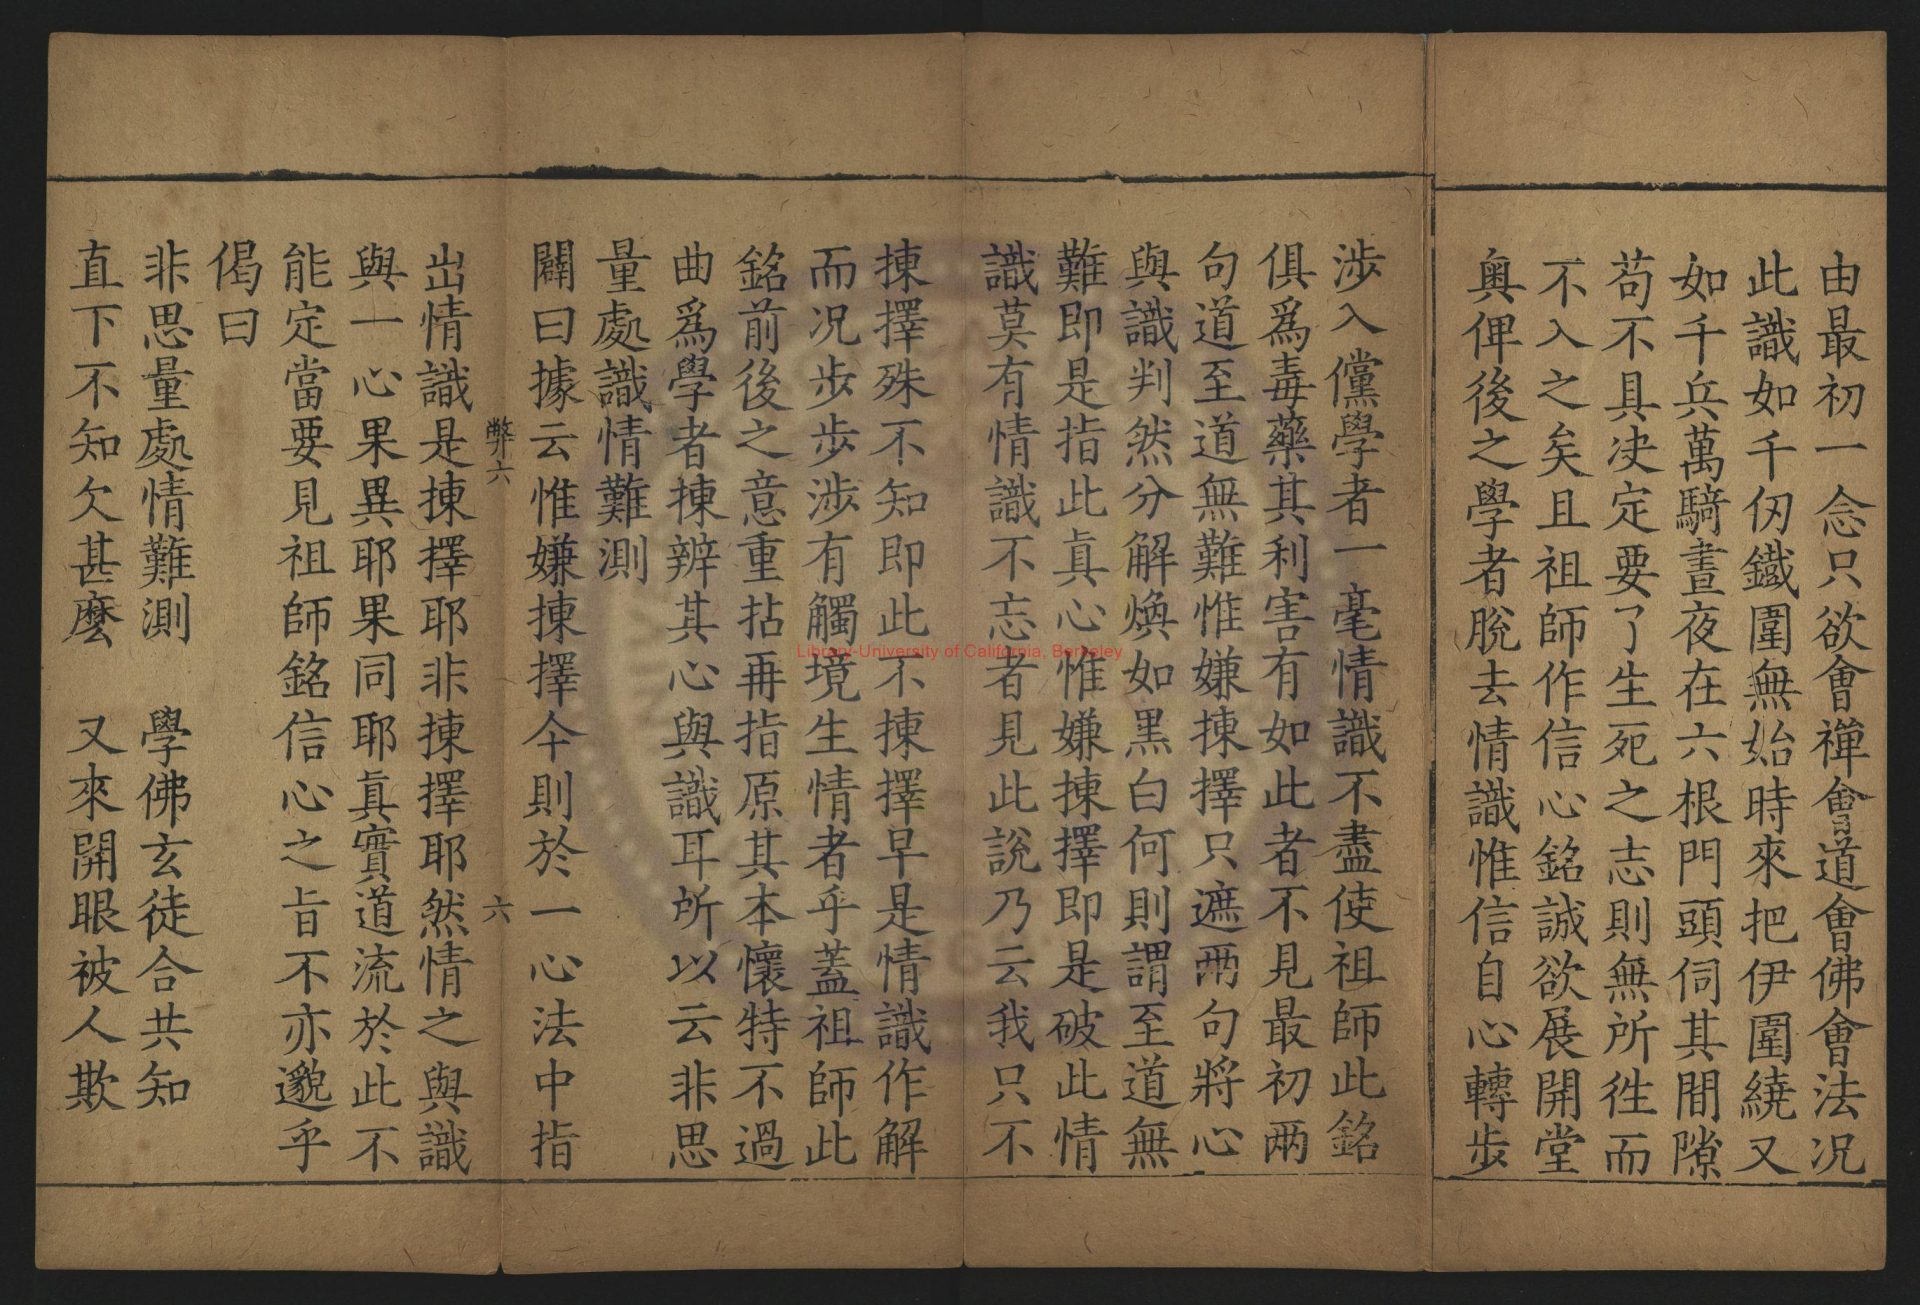 由最初一念只欲會禪會道會佛會法况
此識如千仞鐵圍無始時來把伊圍繞又
如千兵萬騎晝夜在六根門頭伺其間隙
苟不具决定要了生死之志則無所徃而
不入之矣且祖師作信心銘誠欲展開堂
奥俾後之學者脫去情識惟信自心轉步
涉入儻學者一毫情識不盡使祖師此銘
俱爲毒藥其利害有如此者不見最初兩
句道至道無難惟嫌揀擇只遮兩句將心
與識判然分解煥如黑白何則謂至道無
難即是指此眞心惟嫌揀擇即是破此情
識莫有情識不忘者見此說乃云我只不
揀擇殊不知即此不揀擇早是情識作解
而况步步涉有觸境生情者乎蓋祖師此
銘前後之意重拈再指原其本懷特不過
曲爲學者揀辨其心與識耳所以云非思
量處識情難測
闢曰據云惟嫌揀擇今則於一心法中指
弊六 六
出情識是揀擇耶非揀擇耶然情之與識
與一心果異耶果同耶眞實道流於此不
能定當要見祖師銘信心之旨不亦邈乎
偈曰
非思量處情難測 學佛玄徒合共知
直下不知欠甚麼 又來開眼被人欺
Library-University of California, Berkeley